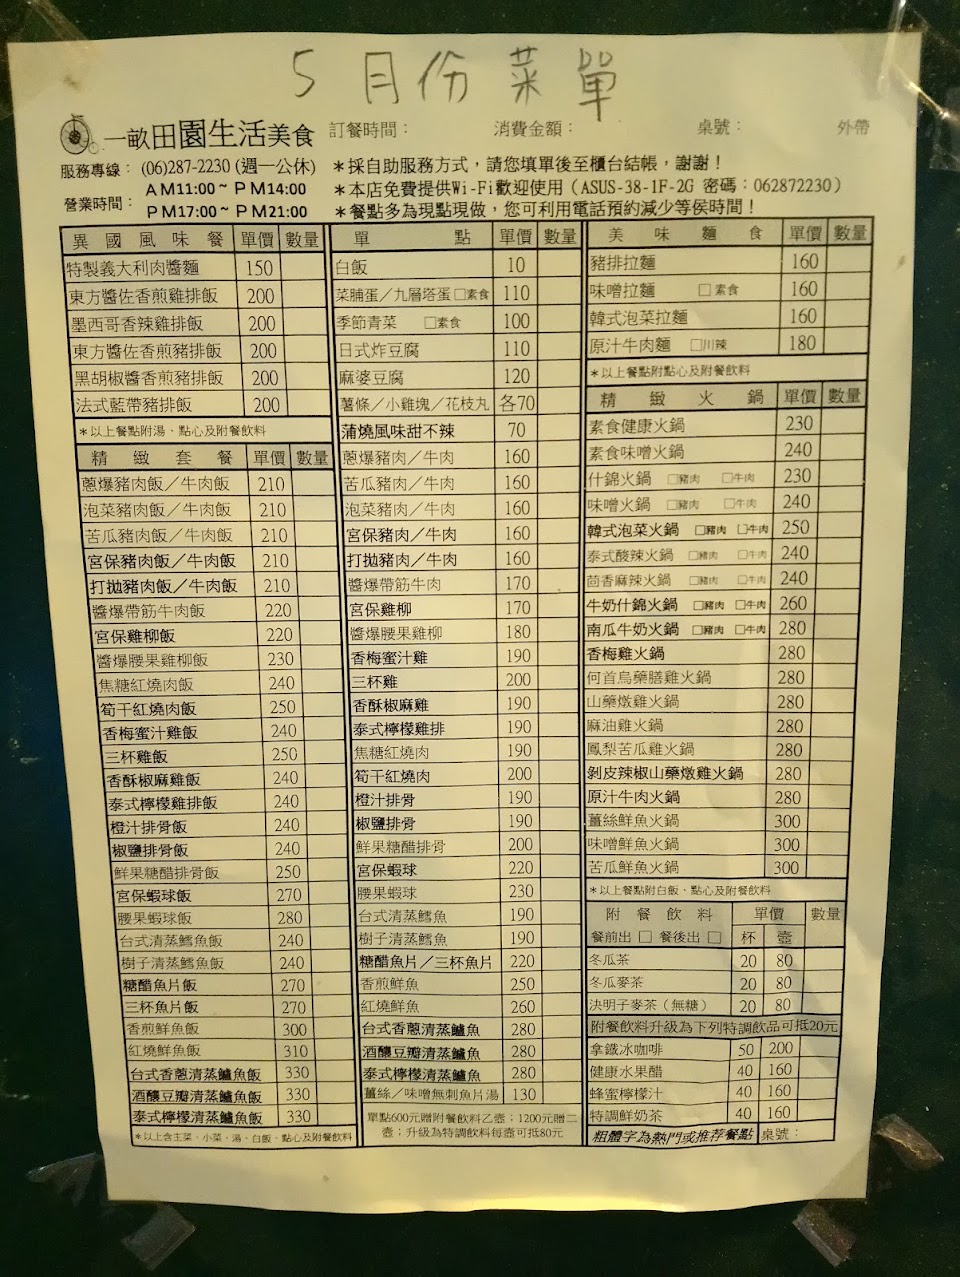 5月份菜單
一畝田園生活美食
訂餐時間：　消費金額：　桌號：　外帶
服務專線：(06)287-2230 (週一公休)
營業時間：AM11:00~PM14:00
PM17:00~PM21:00
＊採自助服務方式，請您填單後至櫃台結帳，謝謝！
＊本店免費提供Wi-Fi歡迎使用（ASUS-38-1F-2G 密碼：062872230）
＊餐點多為現點現做，您可利用電話預約減少等侯時間！
異國風味餐 單價 數量
特製義大利肉醬麵 150
東方醬佐香煎雞排飯 200
墨西哥香辣雞排飯 200
東方醬佐香煎豬排飯 200
黑胡椒醬香煎豬排飯 200
法式藍帶豬排飯 200
＊以上餐點附湯、點心及附餐飲料
精緻套餐 單價 數量
蔥爆豬肉飯／牛肉飯 210
泡菜豬肉飯／牛肉飯 210
苦瓜豬肉飯／牛肉飯 210
宮保豬肉飯／牛肉飯 210
打拋豬肉飯／牛肉飯 210
醬爆帶筋牛肉飯 220
宮保雞柳飯 220
醬爆腰果雞柳飯 230
焦糖紅燒肉飯 240
筍干紅燒肉飯 250
香梅蜜汁雞飯 240
三杯雞飯 250
香酥椒麻雞飯 240
泰式檸檬雞排飯 240
橙汁排骨飯 240
椒鹽排骨飯 240
鮮果糖醋排骨飯 250
宮保蝦球飯 270
腰果蝦球飯 280
台式清蒸鱈魚飯 240
樹子清蒸鱈魚飯 240
糖醋魚片飯 270
三杯魚片飯 270
香煎鮮魚飯 300
紅燒鮮魚飯 310
台式香蔥清蒸鱸魚飯 330
酒釀豆瓣清蒸鱸魚飯 330
泰式檸檬清蒸鱸魚飯 330
＊以上含主菜、小菜、湯、白飯、點心及附餐飲料
單點 單價 數量
白飯 10
菜脯蛋／九層塔蛋 □素食 110
季節青菜 □素食 100
日式炸豆腐 110
麻婆豆腐 120
薯條／小雞塊／花枝丸 各70
蒲燒風味甜不辣 70
蔥爆豬肉／牛肉 160
苦瓜豬肉／牛肉 160
泡菜豬肉／牛肉 160
宮保豬肉／牛肉 160
打拋豬肉／牛肉 160
醬爆帶筋牛肉 170
宮保雞柳 170
醬爆腰果雞柳 180
香梅蜜汁雞 190
三杯雞 200
香酥椒麻雞 190
泰式檸檬雞排 190
焦糖紅燒肉 190
筍干紅燒肉 200
橙汁排骨 190
椒鹽排骨 190
鮮果糖醋排骨 200
宮保蝦球 220
腰果蝦球 230
台式清蒸鱈魚 190
樹子清蒸鱈魚 190
糖醋魚片／三杯魚片 220
香煎鮮魚 250
紅燒鮮魚 260
台式香蔥清蒸鱸魚 280
酒釀豆瓣清蒸鱸魚 280
泰式檸檬清蒸鱸魚 280
薑絲／味噌無刺魚片湯 130
單點600元贈附餐飲料乙壺；1200元贈二
壺；升級為特調飲料每壺可抵80元
美味麵食 單價 數量
豬排拉麵 160
味噌拉麵 □素食 160
韓式泡菜拉麵 160
原汁牛肉麵 □川辣 180
＊以上餐點附點心及附餐飲料
精緻火鍋 單價 數量
素食健康火鍋 230
素食味噌火鍋 240
什錦火鍋 □豬肉 □牛肉 230
味噌火鍋 □豬肉 □牛肉 240
韓式泡菜火鍋 □豬肉 □牛肉 250
泰式酸辣火鍋 □豬肉 □牛肉 240
茴香麻辣火鍋 □豬肉 □牛肉 240
牛奶什錦火鍋 □豬肉 □牛肉 260
南瓜牛奶火鍋 □豬肉 □牛肉 280
香梅雞火鍋 280
何首烏藥膳雞火鍋 280
山藥燉雞火鍋 280
麻油雞火鍋 280
鳳梨苦瓜雞火鍋 280
剝皮辣椒山藥燉雞火鍋 280
原汁牛肉火鍋 280
薑絲鮮魚火鍋 300
味噌鮮魚火鍋 300
苦瓜鮮魚火鍋 300
＊以上餐點附白飯、點心及附餐飲料
附餐飲料 單價 數量
餐前出 □ 餐後出 □ 杯 壺
冬瓜茶 20 80
冬瓜麥茶 20 80
決明子麥茶（無糖） 20 80
附餐飲料升級為下列特調飲品可抵20元
拿鐵冰咖啡 50 200
健康水果醋 40 160
蜂蜜檸檬汁 40 160
特調鮮奶茶 40 160
粗體字為熱門或推荐餐點 桌號：